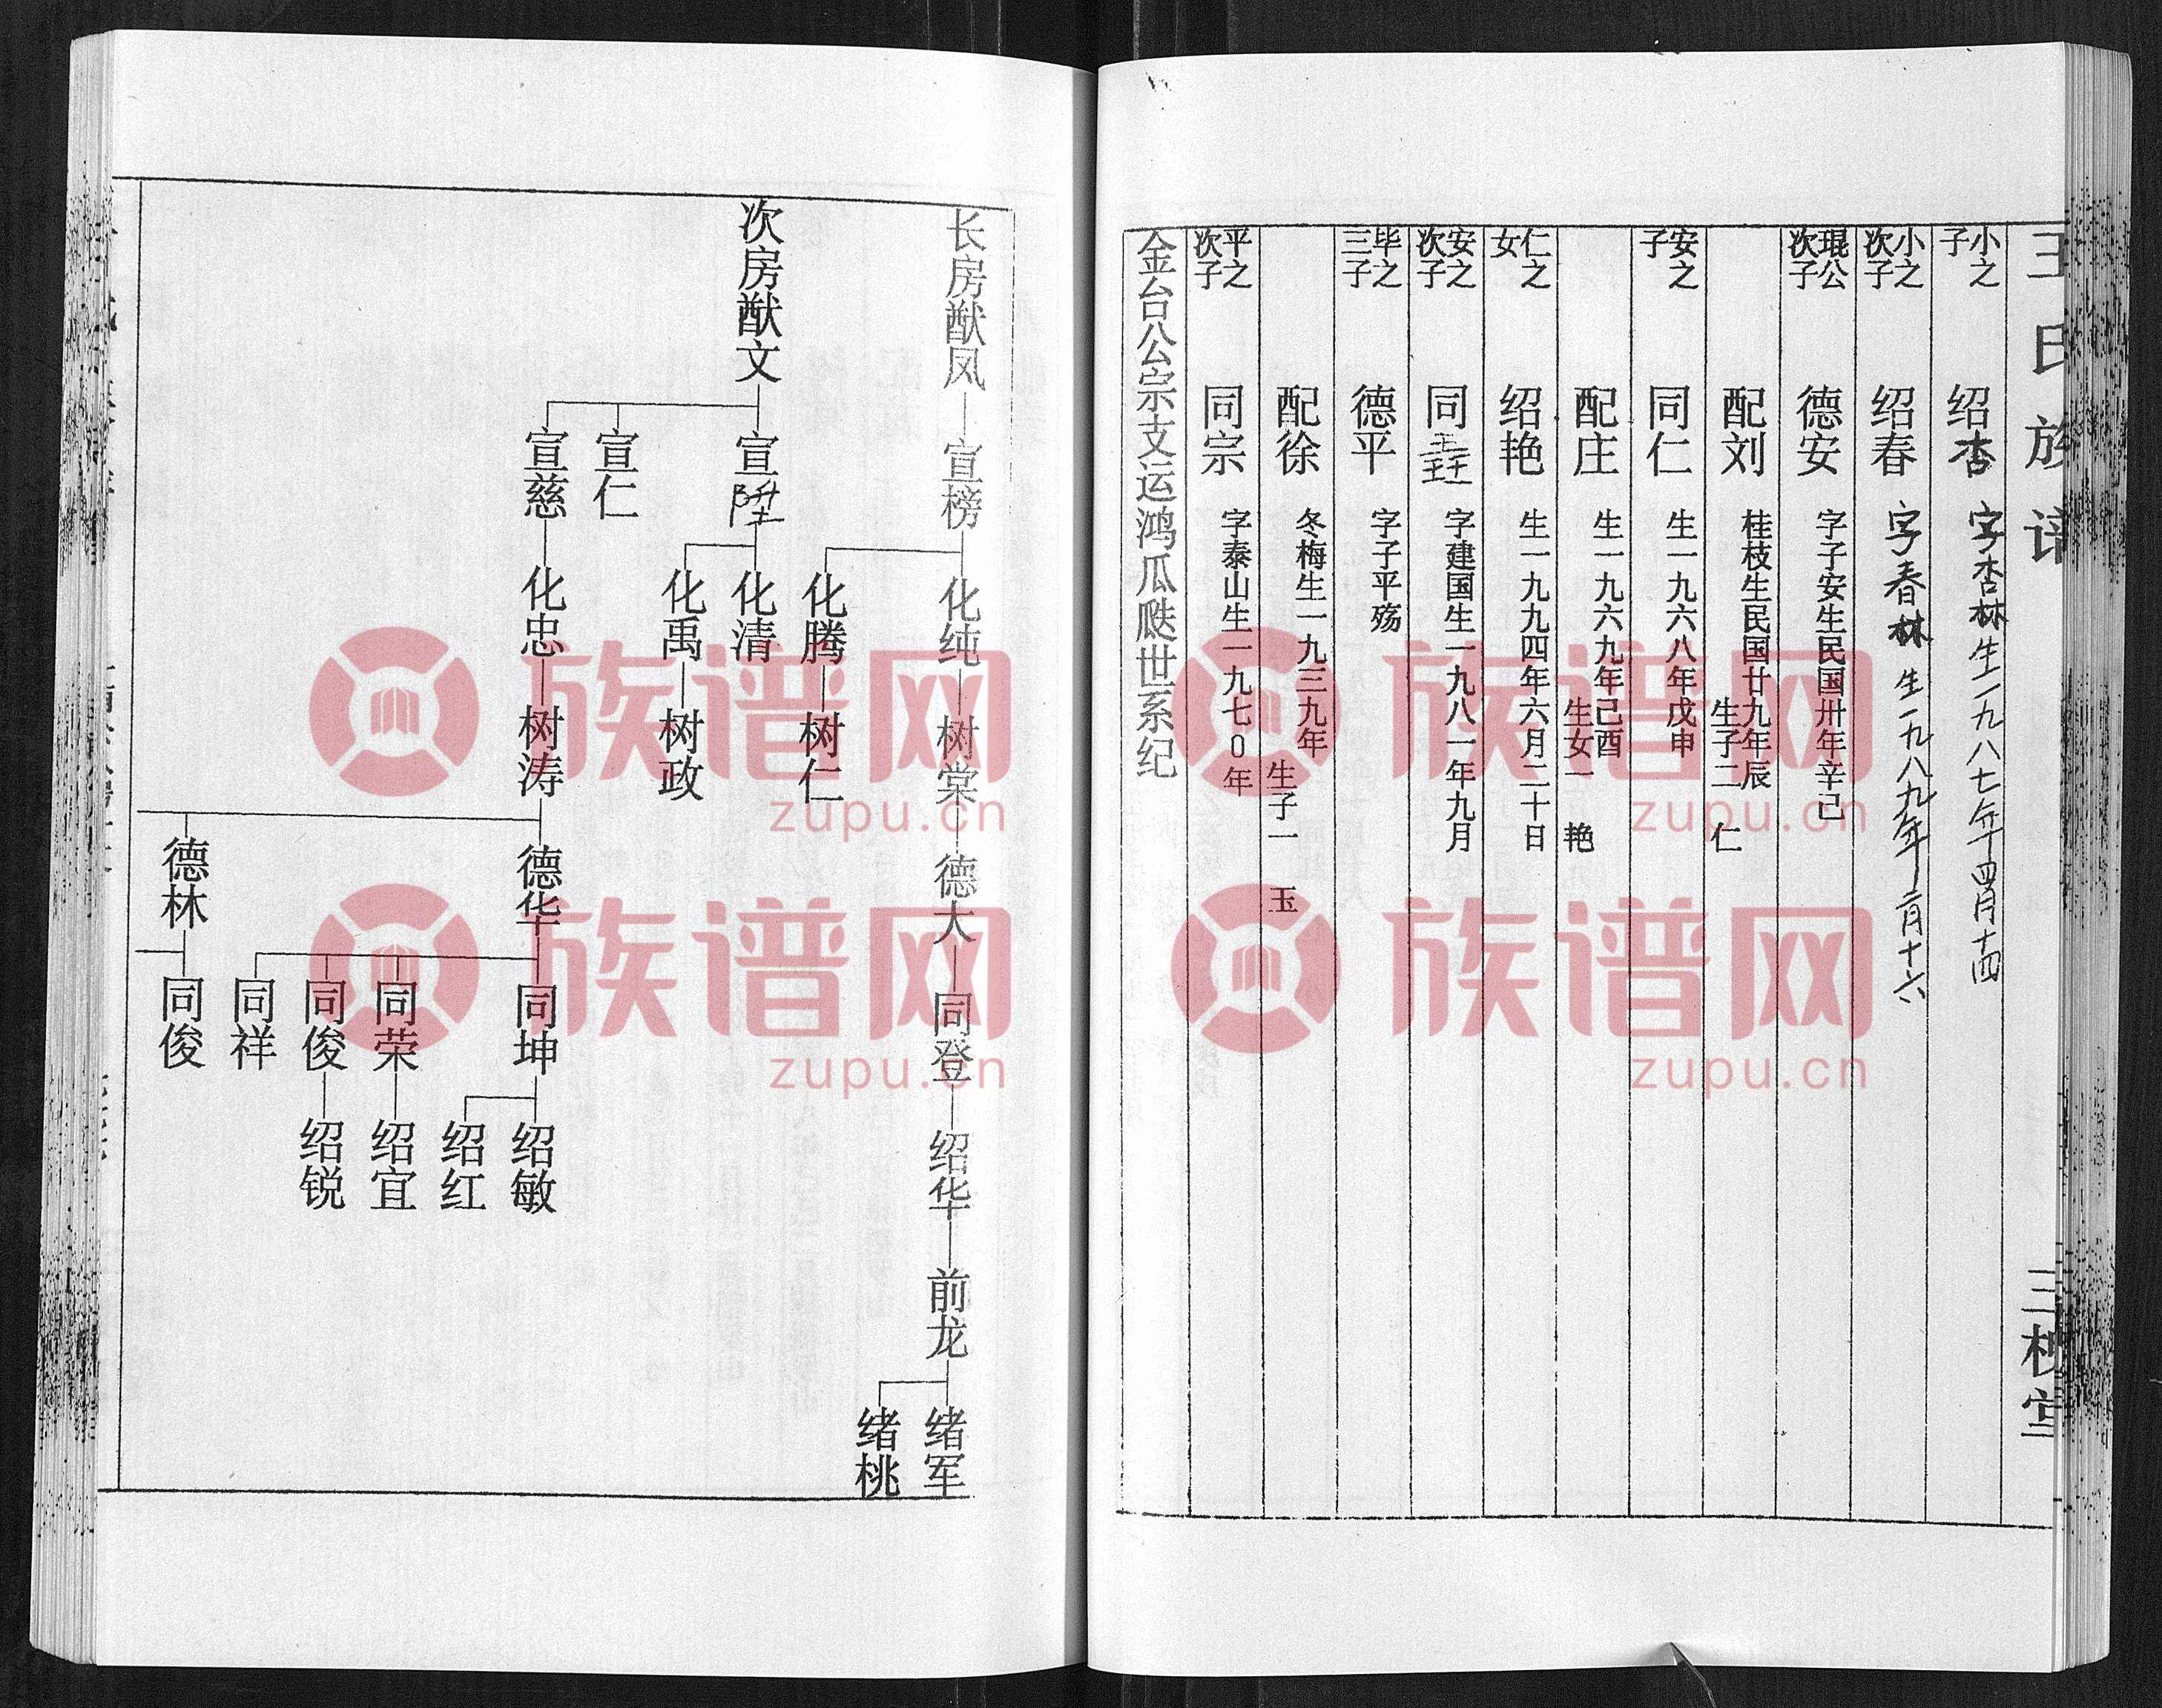 王氏族谱
三槐堂
小之子 绍杏 字杏林生一九八七年四月十四
小之次子 绍春 字春林生一九八九年二月十六
琨公次子 德安 字子安生民国卅年辛己
配刘 桂枝生民国廿九年辰 生子二 仁
安之子 同仁 生一九六八年戊申
配庄 生一九六九年己酉 生女一 艳
仁之女 绍艳 生一九九四年六月二十日
安之次子 同 字建国生一九八一年九月
毕之三子 德平 字子平殇
配徐 冬梅生一九三九年 生子一 玉
平之次子 同宗 字泰山生一九七0年
金台公宗支运鸿瓜瓞世系纪
长房猷凤 宣榜 化纯 树棠 德大 同登 绍华 前龙 绪军
绪桃
化腾 树仁
次房猷文 宣陞 化清
化禹 树政
宣仁
宣慈 化忠 树涛 德华 同坤 绍敏
绍红
同荣 绍宜
同俊 绍锐
同祥
德林 同俊
族谱网
zupu.cn
族谱网
zupu.cn
族谱网
zupu.cn
族谱网
zupu.cn